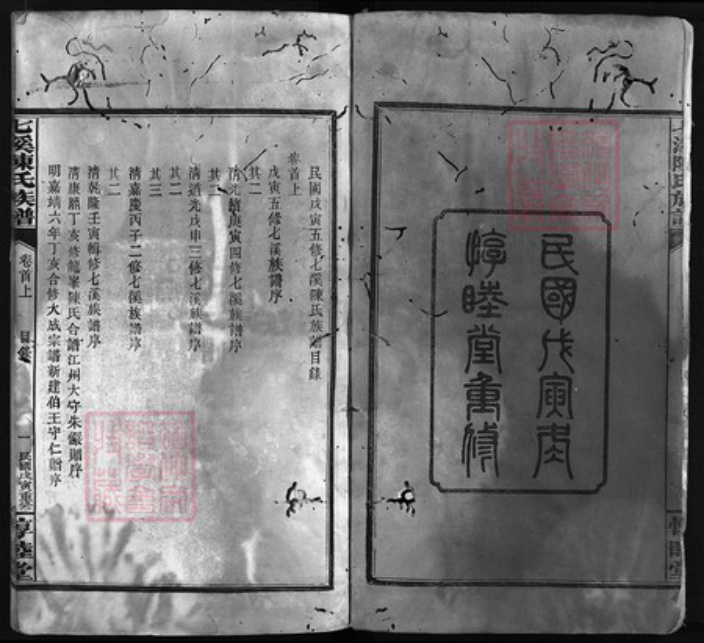 民國戊寅年
惇睦堂重修
民國戊寅五修七溪陳氏族譜目錄
卷首上
戊寅五修七溪族譜序
其二
清光緒庚寅四修七溪族譜序
其二
清道光戊申三修七溪族譜序
其二
其三
清嘉慶丙子二修七溪族譜序
其二
清乾隆壬寅輯修七溪族譜序
清康熙丁亥修龍峯陳氏合譜江州大守朱儼則序
明嘉靖六年丁亥合修大成宗譜新建伯王守仁贈序
七溪陳氏族譜
卷首上
目錄
一
民國戊寅重修
惇睦堂